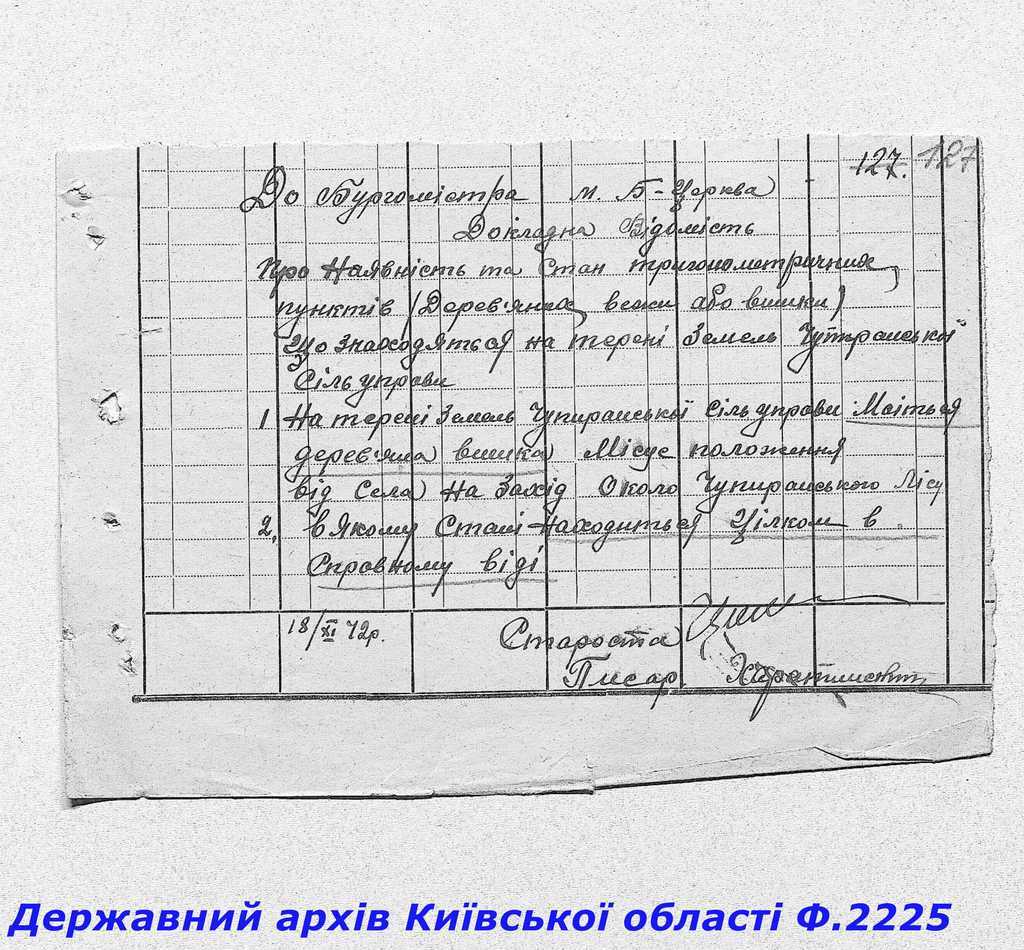 127. 127
До Бургомістра м. Б-Церква
Докладна Відомість
Про Наявність та Стан тригонометричних
пунктів (Дерев'яних вежи або вишки)
Що знаходяться на терені Земель Чупираської
Сільуправи
1 На терені Земель Чупираської Сільуправи Маіться
дерев'яна вишка Місце положення
від Села На Захід Около Чупираського Лісу
2. в Якому Стані Находиться Цілком в
Справному віді
18/XI 42р. Староста
Писар.
Державний архів Київської області Ф.2225